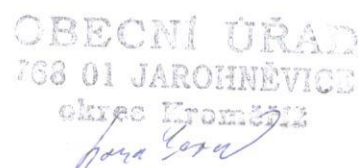 OBECNÍ ÚŘAD
768 01 JAROHNĚVICE
okres Kroměříž